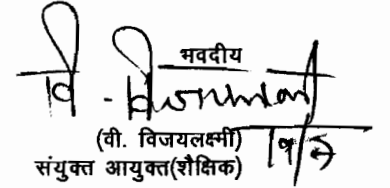 भवदीय
(वी. विजयलक्ष्मी)
संयुक्त आयुक्त(शैक्षिक)